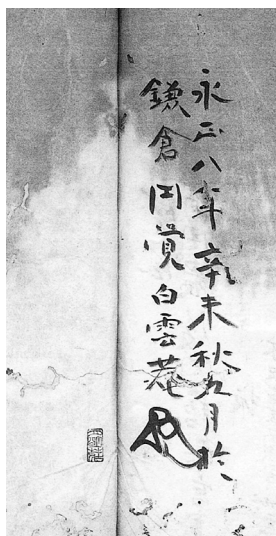 永正八年辛未秋九月於
鎌倉円覚白雲菴